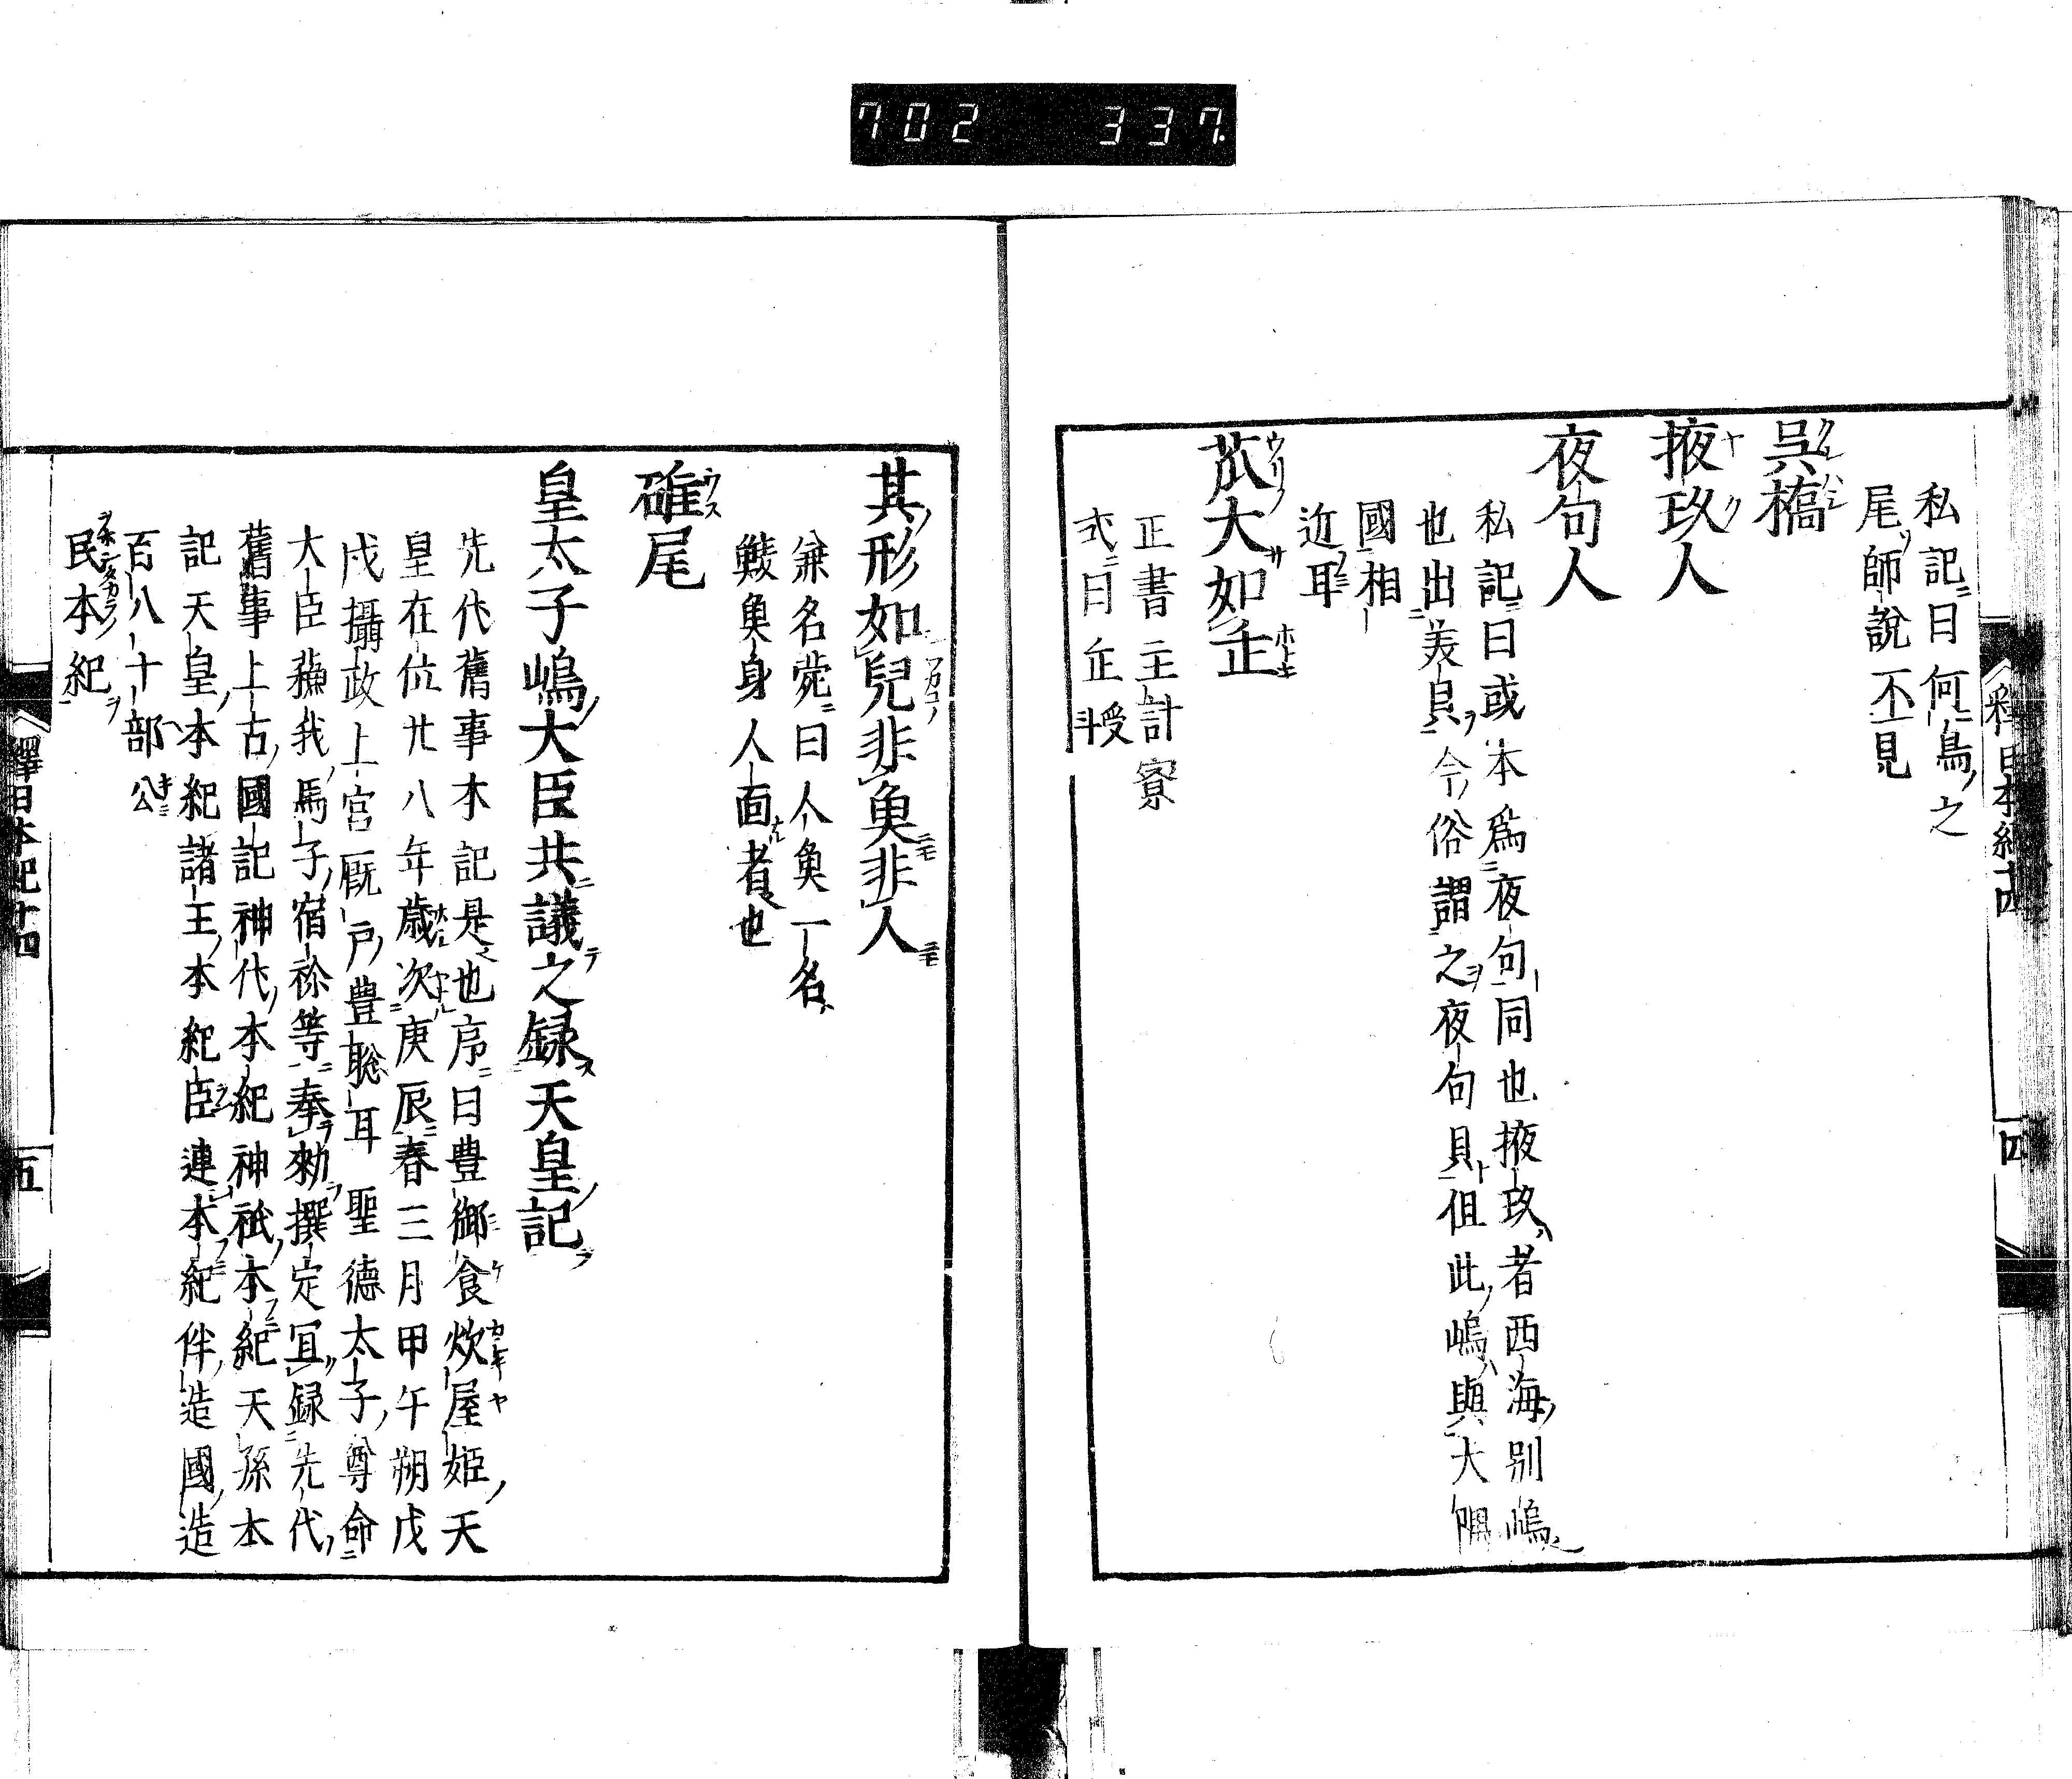 702 337
私記曰何鳥之
尾師說不見
呉橋
掖玖人
夜句人
私記曰或本爲夜句同也掖玖者西海別嶋
也出美貝今俗謂之夜句貝但此嶋與大隅
國相
近耳
苽大如缶
正書主計寮
式曰缶受斗
其形如兒非魚非人
兼名苑曰人魚一名
鯪魚身人面者也
碓尾
皇太子嶋大臣共議之録天皇記
先代舊事本記是也序曰豊御食炊屋姫天
皇在位廿八年歳次庚辰春三月甲午朔戊
戌攝政上宮厩戸豊聡耳聖德太子尊命
大臣蘇我馬子宿祢等奉勅撰定冝録先代
舊事上古國記神代本紀神祇本紀天孫本
記天皇本紀諸王本紀臣連本紀伴造國造
百八十部公
民本紀
釋日本紀十四
五
釋日本紀十四
四